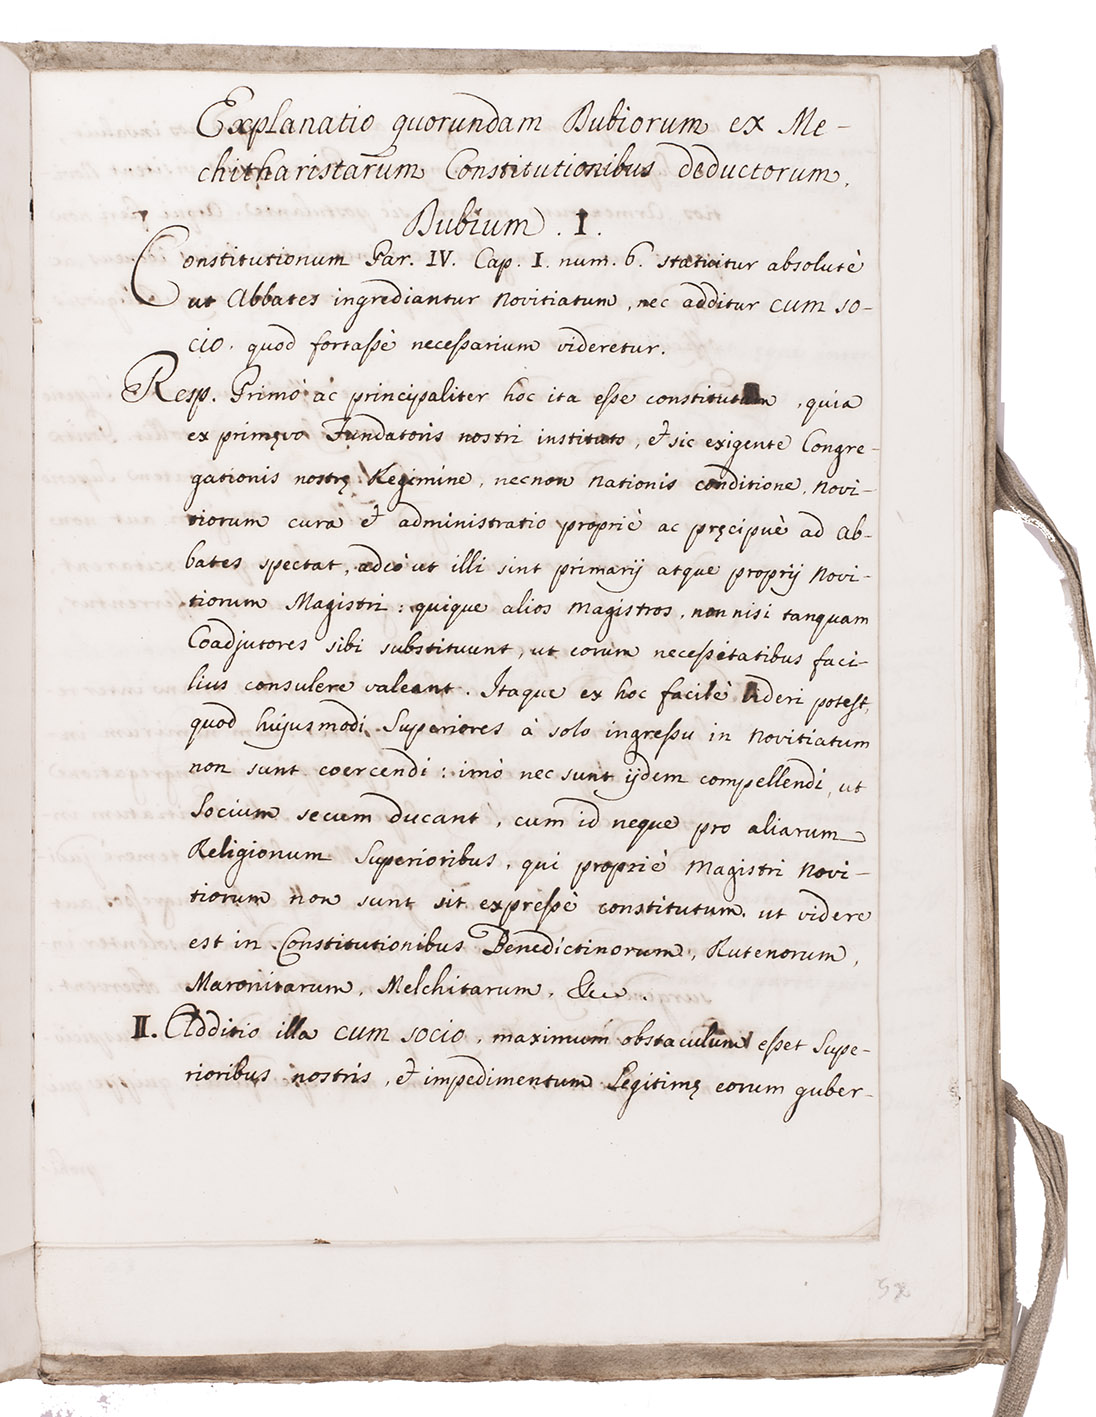 Explanatio quorundam Dubiorum ex Me-
chitharistarum Constitutionibus deductorum.
Dubium . I .
Constitutionum Par. IV. Cap. I. num. 6. statuitur absolutè
ut Abbates ingrediantur Novitiatum, nec additur cum so-
cio. quod fortaßè neceßarium videretur.
Resp. Primò ac principaliter hoc ita eße constitutum, quia
ex primęvo Fundatoris nostri instituto, & sic exigente Congre-
gationis nostrę Regimine, necnon Nationis conditione, Novi-
tiorum cura & administratio propriè ac pręcipuè ad Ab-
bates spectat, adeò ut illi sint primarij atque proprij Novi-
tiorum Magistri: quique alios Magistros, non nisi tanquam
Coadjutores sibi substituunt, ut eorum neceßitatibus faci-
lius consulere valeant. Itaque ex hoc facilè videri potest,
quod hujusmodi Superiores à solo ingreßu in Novitiatum
non sunt coercendi: imò nec sunt ijdem compellendi, ut
Socium secum ducant, cum id neque pro aliarum
Religionum Superioribus, qui propriè Magistri Novi-
tiorum non sunt sit expreßè constitutum. ut videre
est in Constitutionibus Benedictinorum, Rutenorum,
Maronitarum, Melchitarum, &c.
II. Additio illa cum socio, maximum obstaculum eßet Supe-
rioribus nostris, & impedimentum Legitimę eorum guber-
52